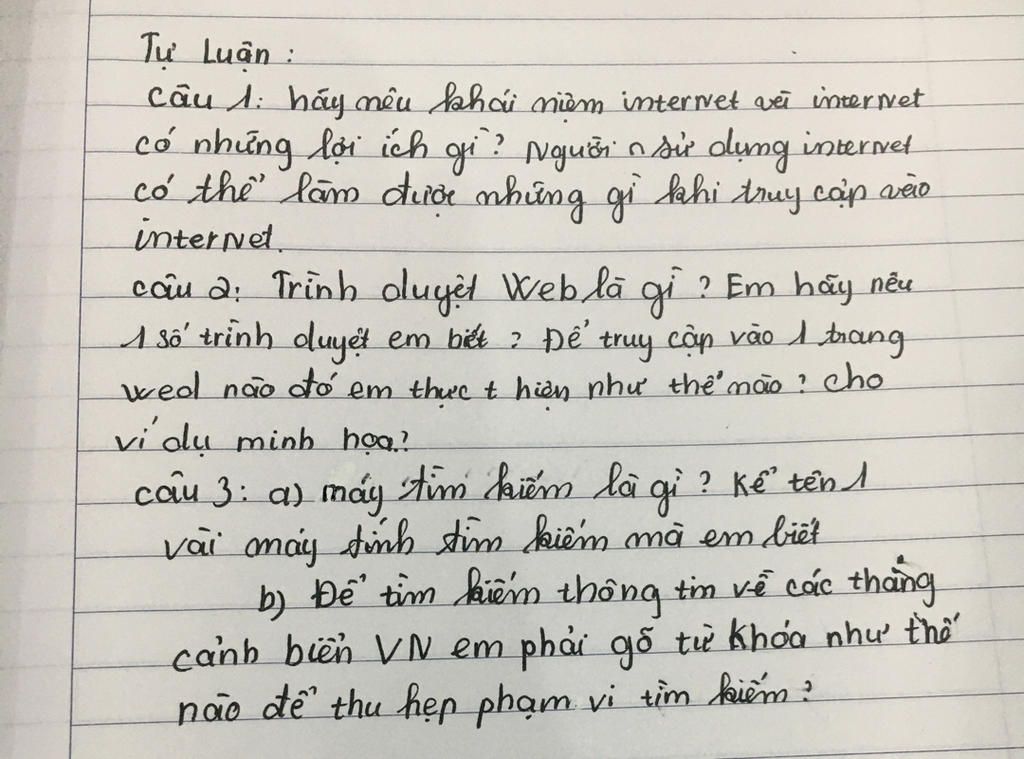 Tự Luận :
Câu 1: hãy nêu khái niệm internet về internet
có những lợi ích gì? Người n sử dụng internet
có thể làm được những gì khi truy cập vào
internet.
câu 2: Trình duyệt Web là gì ? Em hãy nêu
1 số trình duyệt em biết ? Để truy cập vào 1 trang
wed nào đó em thực t hiện như thế nào ? cho
ví dụ minh họa.?
câu 3: a) máy tìm kiếm là gì ? Kể tên 1
vài máy tính tìm kiếm mà em biết
b) Để tìm kiếm thông tin về các thắng
cảnh biển VN em phải gõ từ khóa như thế
nào để thu hẹp phạm vi tìm kiếm ?